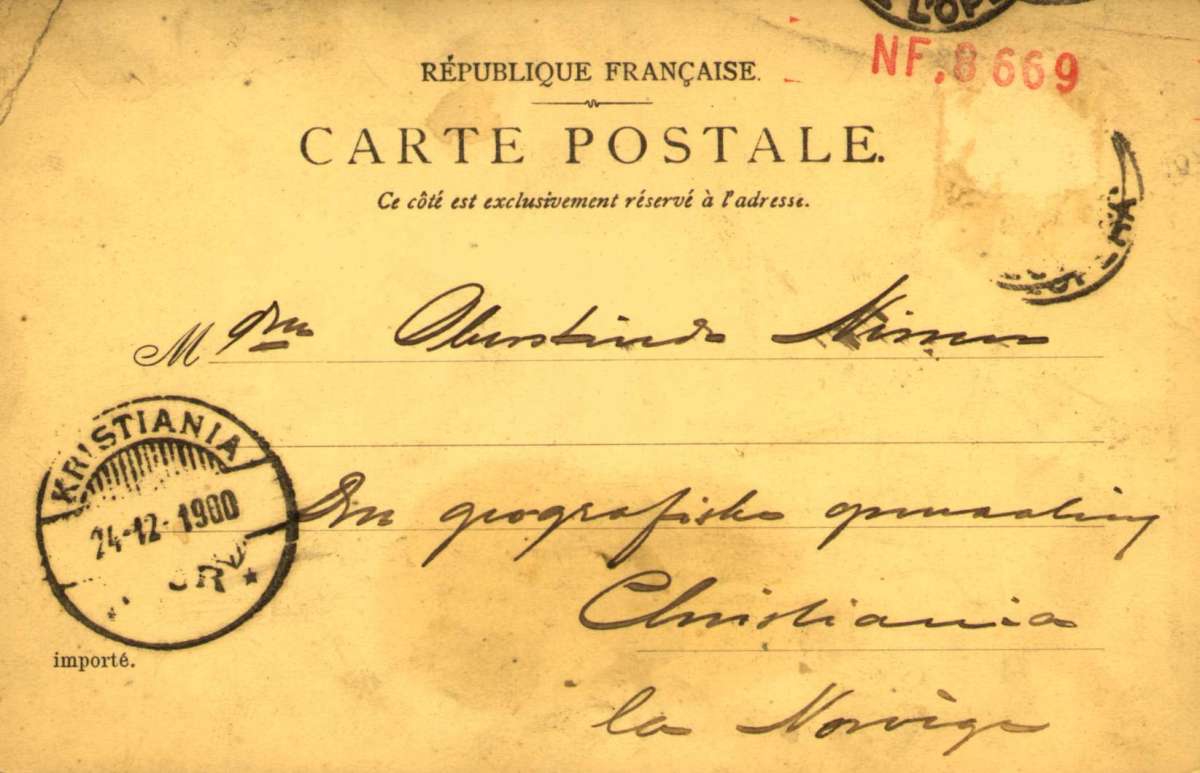 L'OP
NF.8669
RÉPUBLIQUE FRANÇAISE.
CARTE POSTALE.
Ce côté est exclusivement réservé à l'adresse.
M Fru Oberstinde Nissen
KRISTIANIA
24-12-1900
Den geografiske opmaaling
Christiania
importé.
la Norvège